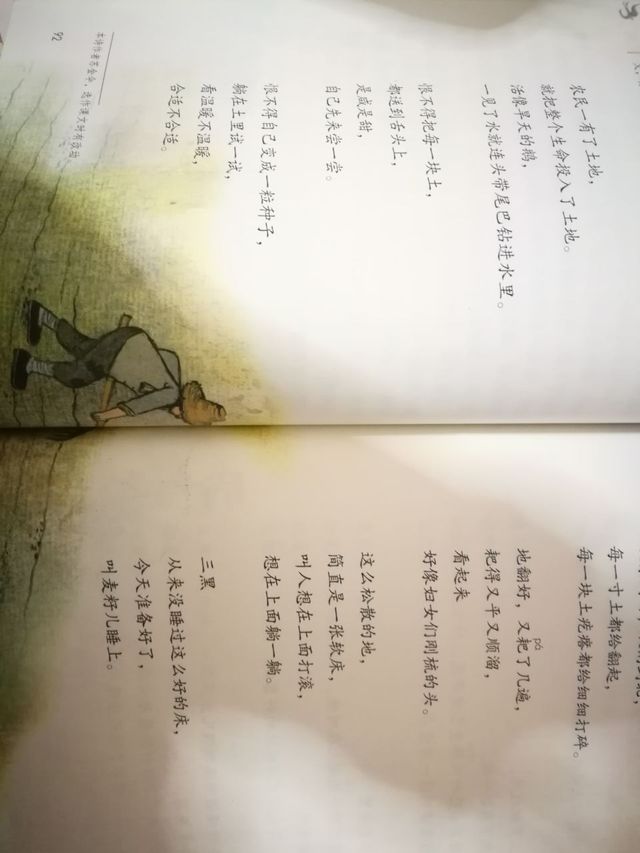 农民一有了土地，
就把整个生命投入了土地。
活像旱天的鹅，
一见了水就连头带尾巴钻进水里。
恨不得把每一块土，
都送到舌头上，
是咸是甜，
自己先来尝一尝。
恨不得自己变成一粒种子，
躺在土里试一试，
看温暖不温暖，
合适不合适。
本诗作者苏金伞，选作课文时有改动
92
每一寸土都给翻起，
每一块土疙瘩都给细细打碎。
pá
地翻好，又耙了几遍，
耙得又平又顺溜，
看起来
好像妇女们刚梳的头。
这么松散的地，
简直是一张软床，
叫人想在上面打滚，
想在上面躺一躺。
三黑
从来没睡过这么好的床，
今天准备好了，
叫麦籽儿睡上。